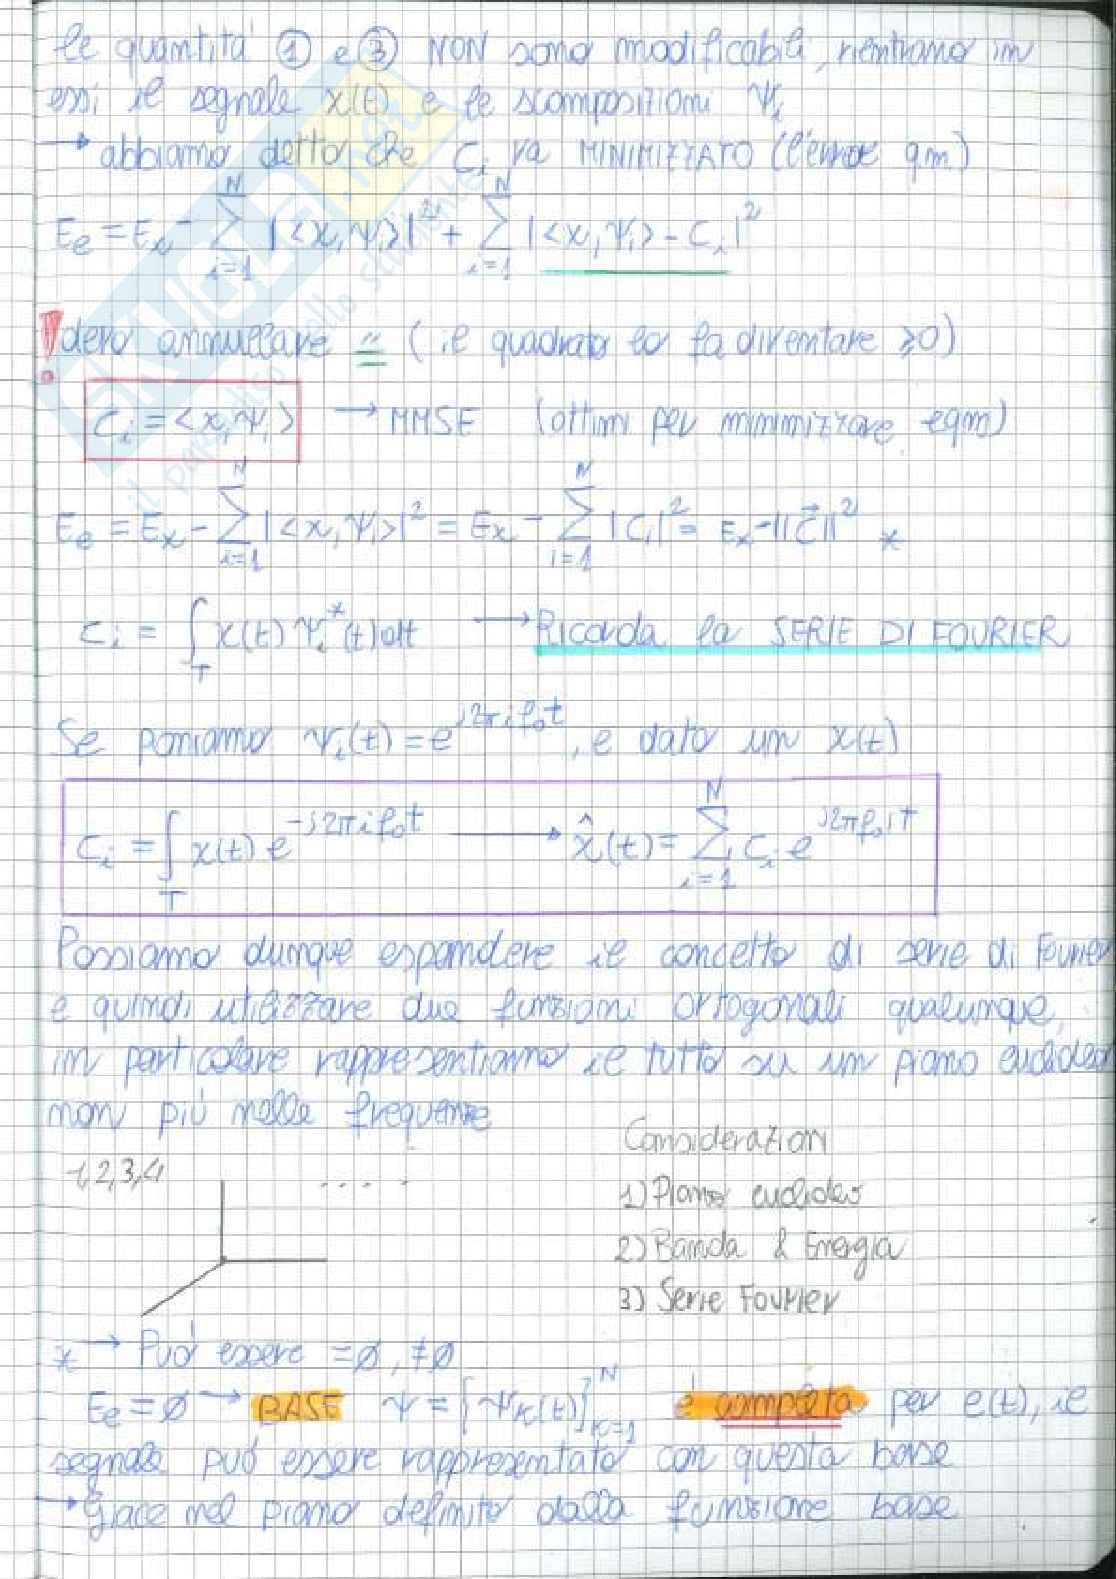 le quantità ① e ③ NON sono modificabili, rientrano in
essi il segnale x(t) e le scomposizioni Ψi
→ abbiamo detto che Ci va MINIMIZZATO (l'errore q.m.)
Ee = Ex - Σ_{i=1}^{N} |<x,Ψi>|² + Σ_{i=1}^{N} |<x,Ψi> - Ci|²
! devo annullare = (il quadrato lo fa diventare ≥0)
Ci = <x,Ψi> → MMSE (ottimi per minimizzare eqm)
Ee = Ex - Σ_{i=1}^{N} |<x,Ψi>|² = Ex - Σ_{i=1}^{N} |Ci|² = Ex - ||C⃗||² *
Ci = ∫_T x(t) Ψi*(t) dt → Ricorda la SERIE DI FOURIER
Se poniamo Ψi(t) = e^{j2πif₀t}, e dato un x(t)
Ci = ∫_T x(t) e^{-j2πif₀t} → x̂(t) = Σ_{i=1}^{N} Ci e^{j2πf₀it}
Possiamo dunque espandere il concetto di serie di Fourier
e quindi utilizzare due funzioni ortogonali qualunque,
in particolare rappresentiamo il tutto su un piano euclideo
non più nelle frequenze
1,2,3,4 ....
Considerazioni
1) Piano euclideo
2) Banda & Energia
3) Serie Fourier
* → Può essere =∅, ≠∅
Ee = ∅ → BASE Ψ = {Ψk(t)}_{k=1}^{N} è completa per e(t), il
segnale può essere rappresentato con questa base
→ Giace nel piano definito dalla funzione base
SKUOLA.net
il paradiso dello studente